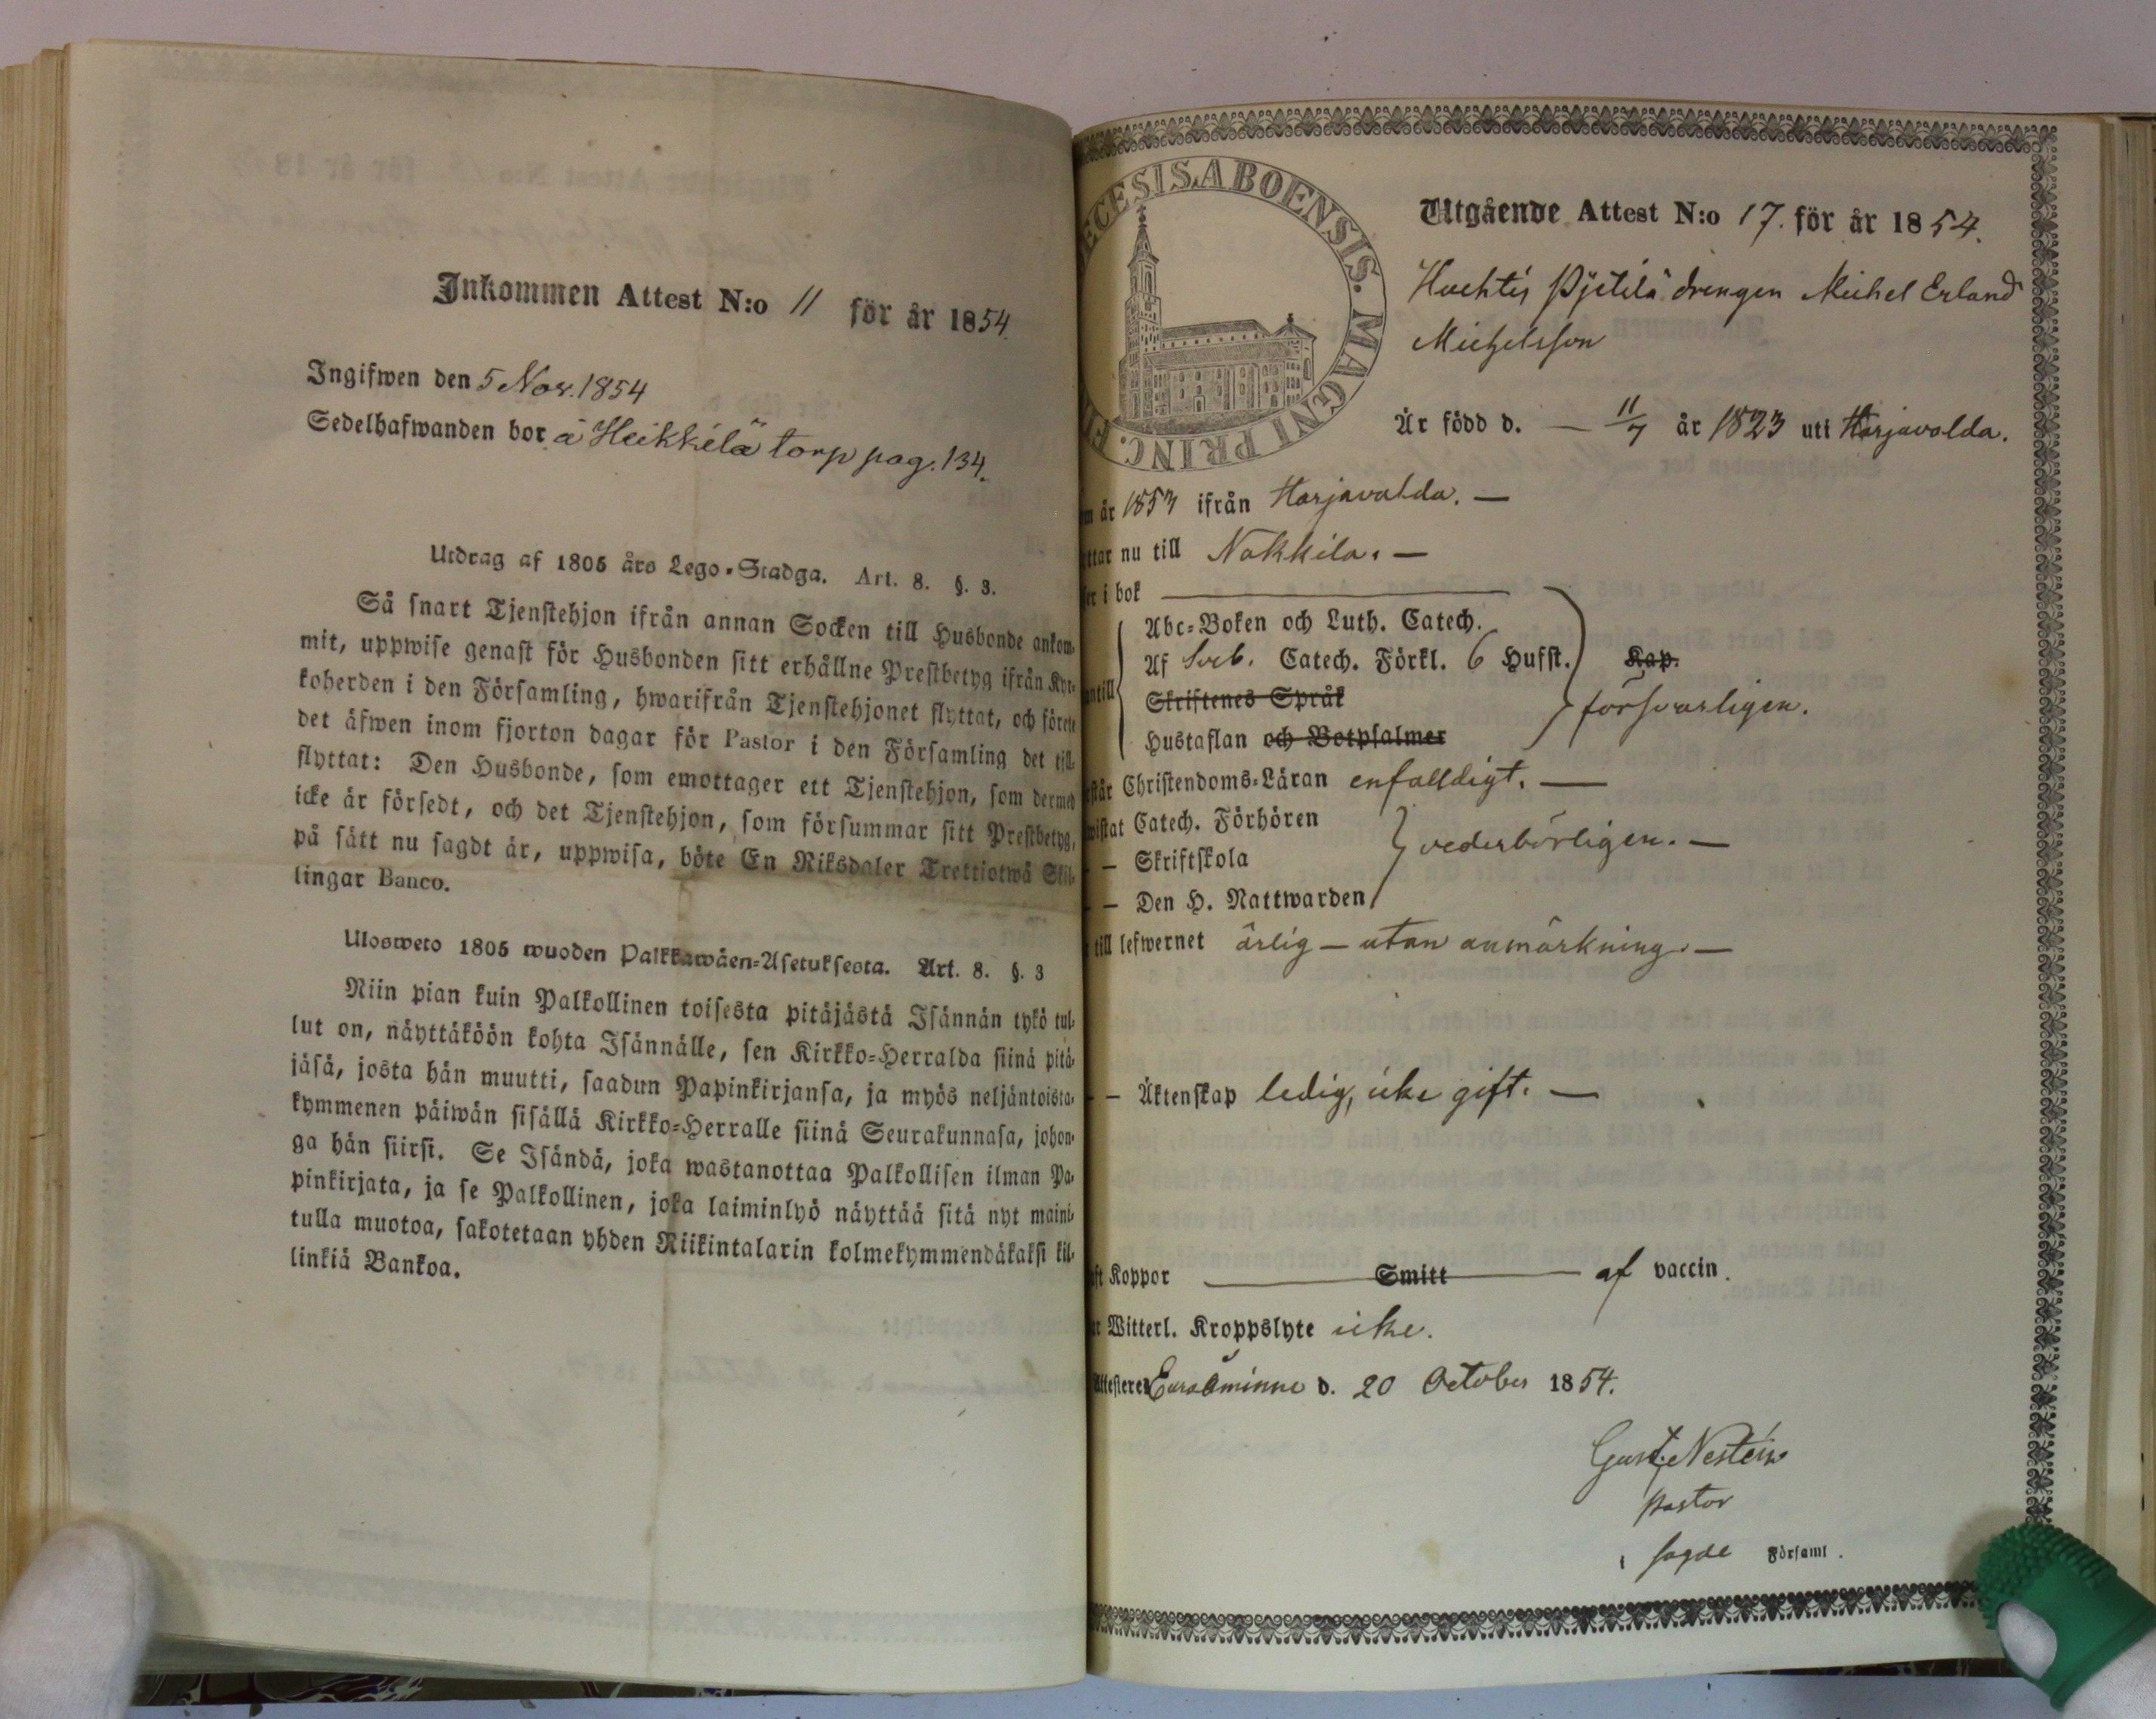 Inkommen Attest N:o 11 för år 1854.
Ingifwen den 5 Nov. 1854
Sedelhafwanden bor å Heikkilä torp pag. 134.
Utdrag af 1805 års Lego-Stadga. Art. 8. §. 3.
Så snart Tjenstehjon ifrån annan Socken till Husbonde ankom-
mit, uppwise genast för Husbonden sitt erhållne Prestbetyg ifrån Kyr-
koherden i den Församling, hwarifrån Tjenstehjonet flyttat, och förete
det äfwen inom fjorton dagar för Pastor i den Församling det till-
flyttat: Den Husbonde, som emottager ett Tjenstehjon, som dermed
icke är försedt, och det Tjenstehjon, som försummar sitt Prestbetyg,
på sätt nu sagdt är, uppwisa, böte En Riksdaler Trettiotwå Skil-
lingar Banco.
Ulosweto 1805 wuoden Palkkawäen-Asetuksesta. Art. 8. §. 3
Niin pian kuin Palkollinen toisesta pitäjästä Isännän tykö tul-
lut on, näyttäköön kohta Isännälle, sen Kirkko-Herralda siinä pitä-
jäsä, josta hän muutti, saadun Papinkirjansa, ja myös neljäntoista-
kymmenen päiwän sisällä Kirkko-Herralle siinä Seurakunnasa, johon-
ga hän siirsi. Se Isändä, joka wastanottaa Palkollisen ilman Pa-
pinkirjata, ja se Palkollinen, joka laiminlyö näyttää sitä nyt maini-
tulla muotoa, sakotetaan yhden Riikintalarin kolmekymmendäkaksi kil-
linkiä Bankoa.
ECESIS.ABOENSIS. MAGNI PRINC. FI
Utgående Attest N:o 17. för år 1854.
Huchtis Pjetilä drengen Michel Erland
Michelsson
Är född d. — 11/7 år 1823 uti Harjavalda.
m år 1853 ifrån Harjavalda. —
ttar nu till Nakkila. —
er i bok
Abc-Boken och Luth. Catech.
Af Sveb. Catech. Förkl. 6 Hufst. Kap.
ntill Skriftenes Språk försvarligen.
Hustaflan och Botpsalmer
står Christendoms-Läran enfalldigt. —
wistat Catech. Förhören
— Skriftskola vederbörligen. —
— Den H. Nattwarden
till lefwernet ärlig — utan anmärkning. —
— Äktenskap ledig, icke gift. —
ft Koppor Smitt af vaccin.
r Witterl. Kroppslyte icke.
Attesteres Euraåminne d. 20 October 1854.
Gust. Nestéus
Pastor
i sagde Församl.